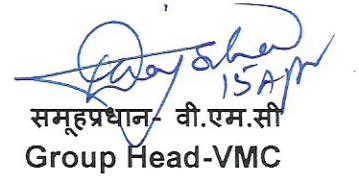 15 Apr
समूहप्रधान- वी.एम.सी
Group Head-VMC